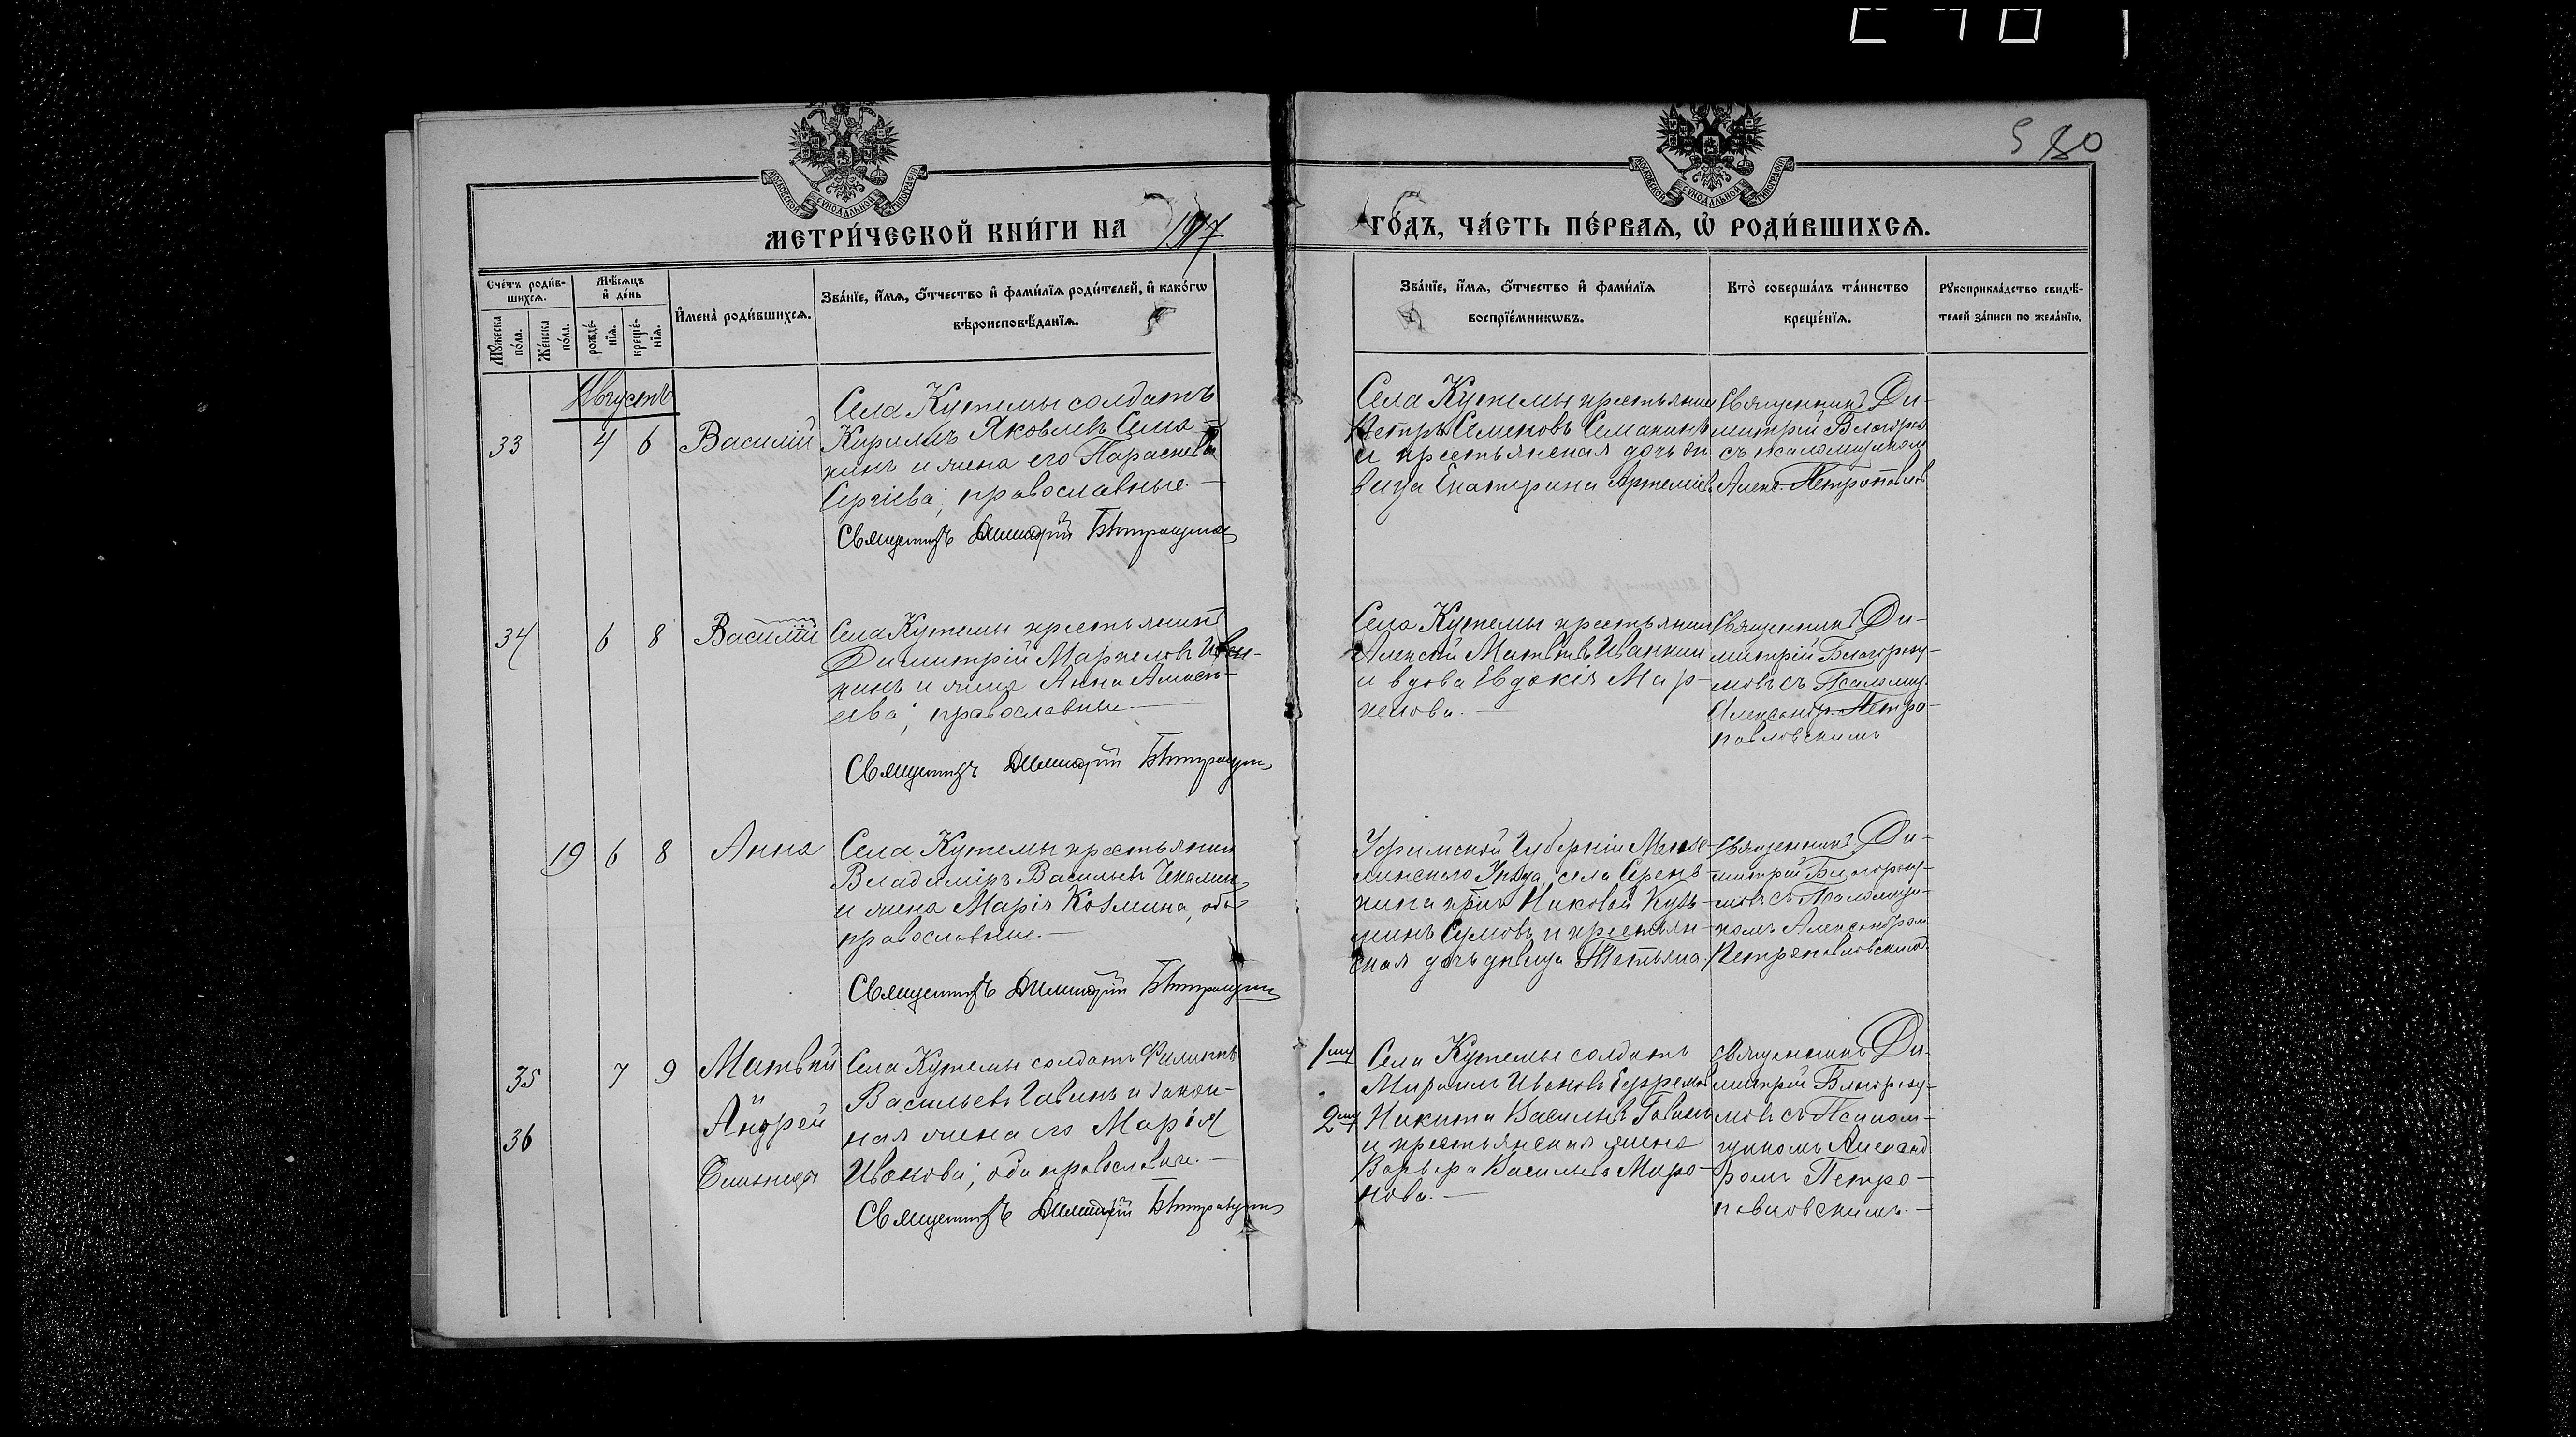 580
МОСКОВСКОЙ СѴНОДАЛЬНОЙ ТИПОГРАФІИ
МОСКОВСКОЙ СѴНОДАЛЬНОЙ ТИПОГРАФІИ
МЕТРИ́ЧЕСКОЙ КНИ́ГИ НА 1917 ГО́ДЪ, ЧА́СТЬ ПЕ́РВАѦ, Ѡ҆ РОДИ́ВШИХСѦ.
Сче́тъ роди́в-
шихсѧ.
Мꙋ́жеска
по́ла.
Же́нска
по́ла.
Мѣ́сѧцъ
и҆ де́нь
рожде́-
нїѧ.
креще́-
нїѧ.
И҆мена̀ роди́вшихсѧ.
Зва́нїе, и҆́мѧ, ѻ҆́тчество и҆ фами́лїѧ роди́телей, и҆ како́гѡ
вѣроисповѣ́данїѧ.
Зва́нїе, и҆́мѧ, ѻ҆́тчество и҆ фами́лїѧ
воспрїе́мникѡвъ.
Кто̀ соверша́лъ та́инство
креще́нїѧ.
Рꙋкоприкла́дство свидѣ́-
телей за́писи по жела́нїю.
Августъ
33
4 6
Василій
Села Кутемы солдатъ
Кириллъ Яковлевъ Сема-
кинъ и жена его Параскева
Сергіева; православные. —
Священникъ Димитрій
Села Кутемы крестьянин
Петръ Семеновъ Семакинъ
и крестьянская дочь дѣ
вица Екатерина Артеміев
Священникъ Ди-
митрій Благораз
съ псаломщиком
Алекс. Петропавлов
34
6 8
Василій
Села Кутемы крестьянинъ
Димитрій Маркеловъ
кинъ и жена Анна Алексѣ-
ева; православные. —
Священникъ Димитрій
Села Кутемы крестьянин
Алексѣй Матвѣевъ Иванкин
и вдова Евдокія Мар-
келова. —
Священникъ Ди-
митрій Благоразу-
мовъ съ Псаломщ.
Александр. Петро-
павловскимъ
19 6 8
Анна
Села Кутемы крестьянин
Владиміръ Васильевъ Чекалин
и жена Марія Козмина, оба
православные. —
Священникъ Димитрій
Уфимской Губерніи Мензе-
линскаго Уѣзда, села Серень-
кина Николай Кузь-
минъ Сумовъ и крестьян-
ская дочь дѣвица Татьяна.
Священникъ Ди-
митрій Благоразу-
мовъ съ Псаломщи-
комъ Александром
Петропавловскимъ.
35
36
7 9
Матвѣй
Андрей
Близнецы
Села Кутемы солдатъ Филиппъ
Васильевъ Гавинъ и закон-
ная жена его Марія
Иванова; оба православные. —
Священникъ Димитрій
1му
2му
Села Кутемы солдатъ
Михаилъ Ивановъ Ефремов
Никита Васильевъ Гавинъ
и крестьянская жена
Варвара Васильева Миро-
нова. —
Священникъ Ди-
митрій Благоразу-
мовъ съ Псалом-
щикомъ Александ
ромъ Петро-
павловскимъ. —